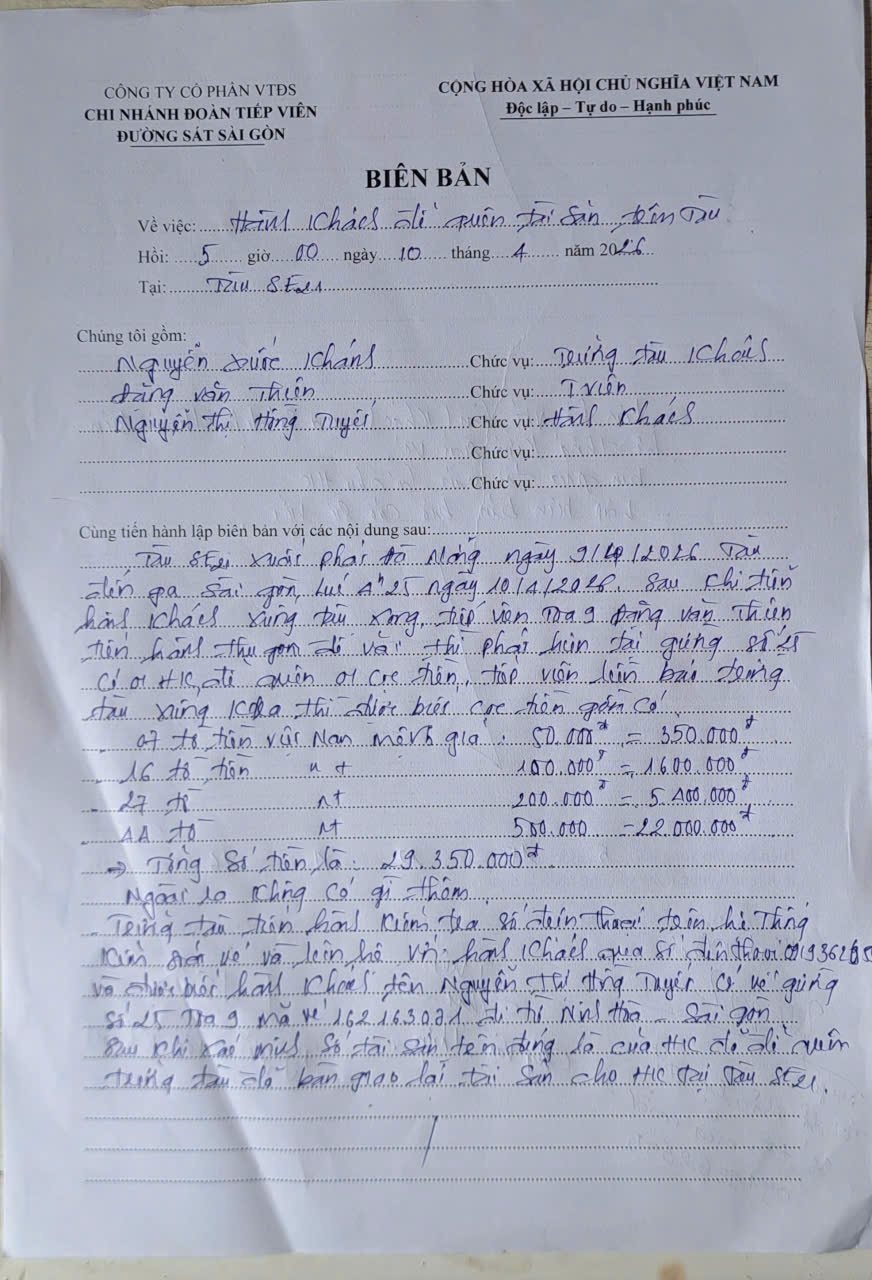 CÔNG TY CỔ PHẦN VTĐS
CHI NHÁNH ĐOÀN TIẾP VIÊN
ĐƯỜNG SẮT SÀI GÒN
CỘNG HÒA XÃ HỘI CHỦ NGHĨA VIỆT NAM
Độc lập – Tự do – Hạnh phúc
BIÊN BẢN
Về việc: Hành Khách để quên tài sản trên Tàu
Hồi: 5 giờ 00 ngày 10 tháng 4 năm 2026
Tại: Tàu SE21
Chúng tôi gồm:
Nguyễn Khánh Chức vụ: Trưởng tàu Khách
Đặng văn Thiên Chức vụ: T viên
Nguyễn Thị Hồng Tuyết Chức vụ: Hành Khách
Chức vụ:
Chức vụ:
Cùng tiến hành lập biên bản với các nội dung sau:
Tàu SE21 xuất phát Đà Nẵng ngày 9/4/2026 Tàu
đến ga Sài gòn lúc 4h25 ngày 10/4/2026. Sau khi tiễn
hành Khách xuống tàu xong, tiếp viên Toa 9 Đặng văn Thiên
tiến hành thu gom đồ vải thì phát hiện tại giường số 25
Có 01 HK để quên 01 cọc tiền, tiếp viên liền báo trưởng
tàu xuống thì được biết cọc tiền gồm có
07 tờ tiền việt Nam mệnh giá: 50.000đ = 350.000đ
- 16 tờ tiền nt 100.000đ = 1600.000đ
- 27 tờ nt 200.000đ = 5.400.000đ
- 44 tờ nt 500.000 = 22.000.000đ
→ Tổng số tiền là: 29.350.000đ
Ngoài ra không có gì thêm
- Trưởng tàu tiến hành kiểm tra số điện thoại trên hệ Thống
bán vé và liên hệ với hành Khách qua số điện thoại
và được biết hành Khách tên Nguyễn Thị Hồng Tuyết có vé giường
số 25 Toa 9 mã vé 162163031 đi từ Ninh Hoà - Sài gòn
Sau khi xác minh số tài sản trên đúng là của HK đã để quên
trưởng tàu đã bàn giao lại tài sản cho HK tại Tàu SE21.